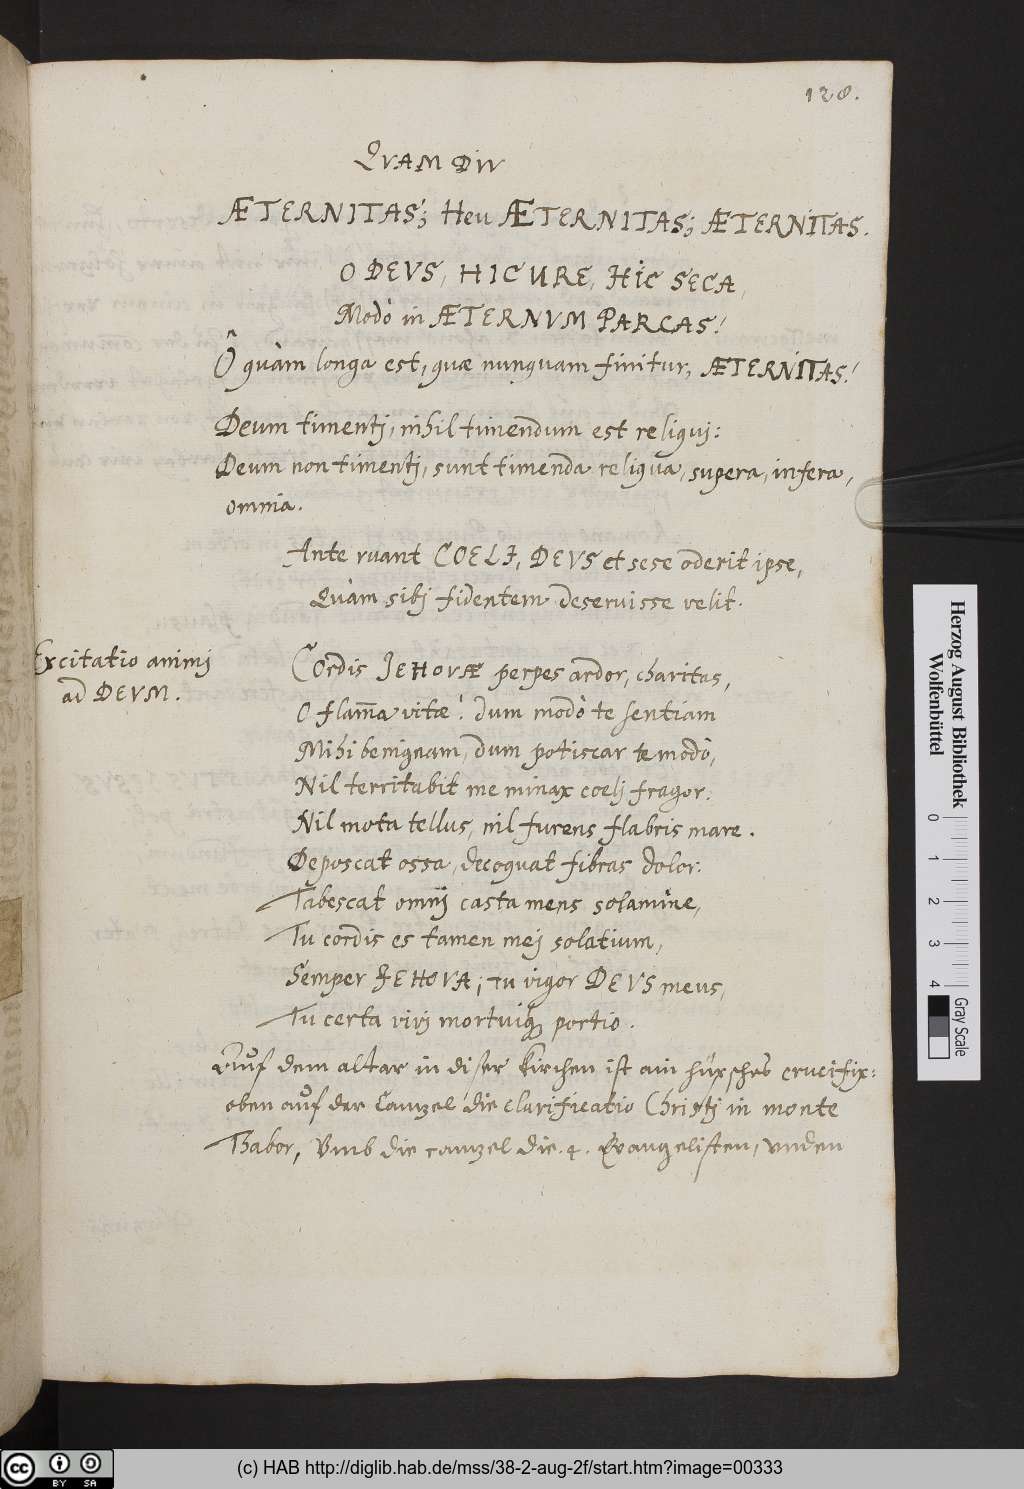 128.
QVAM DIV
ÆTERNITAS; Heu ÆTERNITAS; ÆTERNITAS.
O DEVS, HIC URE, HIC SECA,
Modò in ÆTERNVM PARCAS!
Ô quàm longa est, quæ nunquam finitur, ÆTERNITAS!
Deum timentj, nihil timendum est reliquj:
Deum non timentj, sunt timenda reliqua, supera, infera,
omnia.
Ante ruant COELI, DEVS et sese oderit ipse,
Quàm sibj fidentem deseruisse velit.
Excitatio animj
ad DEVM.
Cordis JEHOVÆ perpes ardor, charitas,
O flam̄a vitæ! dum modò te sentiam
Mihi benignam, dum potiscar te modò,
Nil territabit me minax coelj fragor:
Nil mota tellus, nil furens flabris mare.
Deposcat ossa, decoquat fibras dolor:
Tabescat omnj casta mens solamine,
Tu cordis es tamen mej solatium,
Semper JEHOVA; tu vigor DEVS meus,
Tu certa vivj mortuiq portio.
Auf dem altar in diser kirchen ist ain hüpsches crucifix:
oben auf der Canzel die clarificatio Christj in monte
Thabor, Vmb die canzel die .4. Evangelisten, vnden
Herzog August Bibliothek
Wolfenbüttel
0 1 2 3 4
Gray Scale
cc BY SA
(c) HAB http://diglib.hab.de/mss/38-2-aug-2f/start.htm?image=00333